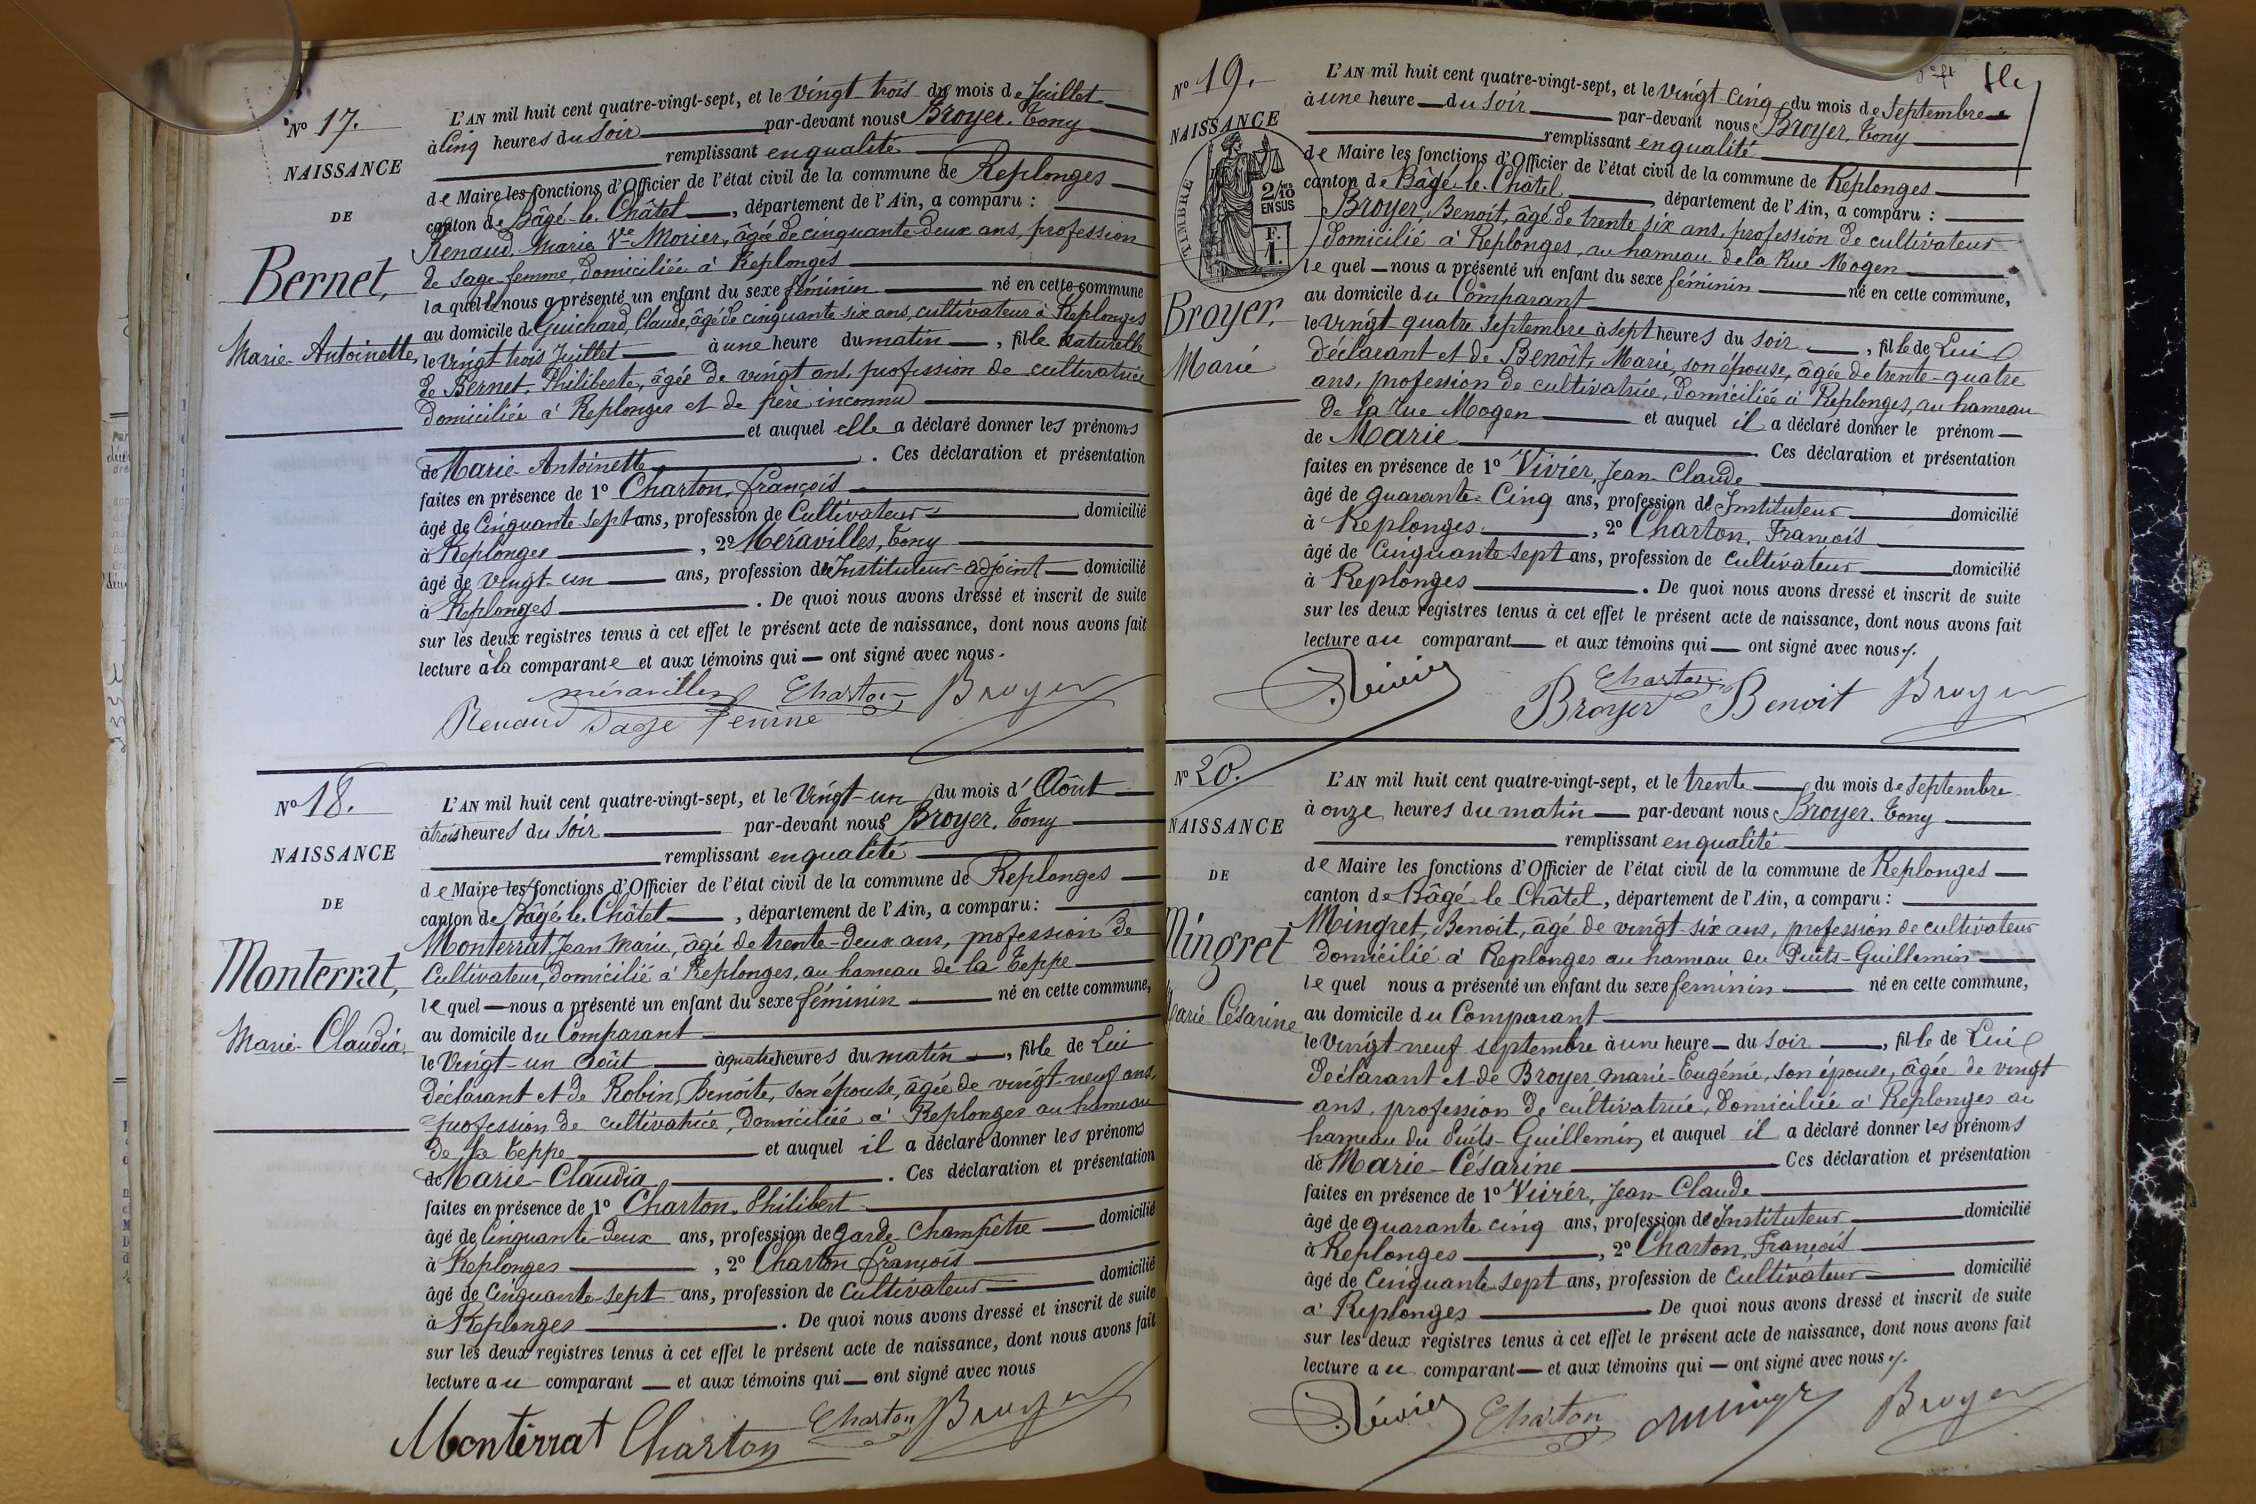 N° 17.
NAISSANCE
DE
Bernet,
Marie-Antoinette,
L'AN mil huit cent quatre-vingt-sept, et le vingt trois du mois de Juillet
à Cinq heures du Soir par-devant nous Broyer, Tony
remplissant en qualité
de Maire les fonctions d'Officier de l'état civil de la commune de Replonges
canton de Bâgé-le-Châtel, département de l'Ain, a comparu :
Renaud, Marie Vve Morier, âgée de cinquante-deux ans, profession
de sage-femme, domiciliée à Replonges
laquelle nous a présenté un enfant du sexe féminin né en cette commune
au domicile de Guichard, Claude, âgé de cinquante-six ans, cultivateur à Replonges
le vingt trois Juillet à une heure du matin, fille naturelle
de Bernet, Philiberte, âgée de vingt ans, profession de cultivatrice
domiciliée à Replonges et de père inconnu
et auquel elle a déclaré donner les prénoms
de Marie-Antoinette. Ces déclaration et présentation
faites en présence de 1° Charton, François
âgé de Cinquante-sept ans, profession de Cultivateur domicilié
à Replonges, 2° Méravilles, Tony
âgé de vingt-un ans, profession de Instituteur-adjoint domicilié
à Replonges. De quoi nous avons dressé et inscrit de suite
sur les deux registres tenus à cet effet le présent acte de naissance, dont nous avons fait
lecture à la comparante et aux témoins qui ont signé avec nous.
méravilles Charton Broyer
Renaud Sage femme
N° 18.
NAISSANCE
DE
Monterrat,
Marie-Claudia.
L'AN mil huit cent quatre-vingt-sept, et le Vingt-un du mois d'Août
à trois heures du Soir par-devant nous Broyer, Tony
remplissant en qualité
de Maire les fonctions d'Officier de l'état civil de la commune de Replonges
canton de Bâgé-le-Châtel, département de l'Ain, a comparu :
Monterrat, Jean Marie, âgé de trente-deux ans, profession de
Cultivateur, domicilié à Replonges, au hameau de la Teppe
lequel nous a présenté un enfant du sexe féminin né en cette commune,
au domicile du Comparant
le Vingt-un Août à quatre heures du matin, fille de Lui
déclarant et de Robin, Benoîte, son épouse, âgée de vingt-neuf ans,
profession de cultivatrice, domiciliée à Replonges au hameau
de la Teppe et auquel il a déclaré donner les prénoms
de Marie-Claudia. Ces déclaration et présentation
faites en présence de 1° Charton, Philibert
âgé de Cinquante-deux ans, profession de garde-Champêtre domicilié
à Replonges, 2° Charton, François
âgé de Cinquante-sept ans, profession de Cultivateur domicilié
à Replonges. De quoi nous avons dressé et inscrit de suite
sur les deux registres tenus à cet effet le présent acte de naissance, dont nous avons fait
lecture au comparant et aux témoins qui ont signé avec nous
Monterrat Charton Charton Broyer
N° 19.
NAISSANCE
TIMBRE
2/10 EN SUS
F. 1.
Broyer,
Marie
L'AN mil huit cent quatre-vingt-sept, et le Vingt Cinq du mois de Septembre
à une heure du Soir par-devant nous Broyer, Tony
remplissant en qualité
de Maire les fonctions d'Officier de l'état civil de la commune de Replonges
canton de Bâgé-le-Châtel, département de l'Ain, a comparu :
Broyer, Benoit, âgé de trente six ans, profession de cultivateur
domicilié à Replonges, au hameau de la Rue Mogen
lequel nous a présenté un enfant du sexe féminin né en cette commune,
au domicile du Comparant
le Vingt-quatre Septembre à sept heures du soir, fille de Lui
déclarant et de Benoît, Marie, son épouse, âgée de trente-quatre
ans, profession de cultivatrice, domiciliée à Replonges, au hameau
de la rue Mogen et auquel il a déclaré donner le prénom
de Marie. Ces déclaration et présentation
faites en présence de 1° Vivier, Jean-Claude
âgé de quarante-Cinq ans, profession d'Instituteur domicilié
à Replonges, 2° Charton, François
âgé de Cinquante sept ans, profession de Cultivateur domicilié
à Replonges. De quoi nous avons dressé et inscrit de suite
sur les deux registres tenus à cet effet le présent acte de naissance, dont nous avons fait
lecture au comparant et aux témoins qui ont signé avec nous.
Vivier Charton
Broyer Benoit Broyer
N° 20.
NAISSANCE
DE
Mingret
Marie-Césarine
L'AN mil huit cent quatre-vingt-sept, et le trente du mois de septembre
à onze heures du matin par-devant nous Broyer, Tony
remplissant en qualité
de Maire les fonctions d'Officier de l'état civil de la commune de Replonges
canton de Bâgé-le-Châtel, département de l'Ain, a comparu :
Mingret, Benoit, âgé de vingt-six ans, profession de cultivateur
domicilié à Replonges au hameau du Puits-Guillemin
lequel nous a présenté un enfant du sexe féminin né en cette commune,
au domicile du Comparant
le vingt neuf septembre à une heure du soir, fille de Lui
déclarant et de Broyer, Marie-Eugénie, son épouse, âgée de vingt
ans, profession de cultivatrice, domiciliée à Replonges au
hameau du Puits-Guillemin et auquel il a déclaré donner les prénoms
de Marie-Césarine Ces déclaration et présentation
faites en présence de 1° Vivier, Jean-Claude
âgé de quarante cinq ans, profession d'Instituteur domicilié
à Replonges, 2° Charton, François
âgé de Cinquante sept ans, profession de Cultivateur domicilié
à Replonges De quoi nous avons dressé et inscrit de suite
sur les deux registres tenus à cet effet le présent acte de naissance, dont nous avons fait
lecture au comparant et aux témoins qui ont signé avec nous.
Vivier Charton Broyer